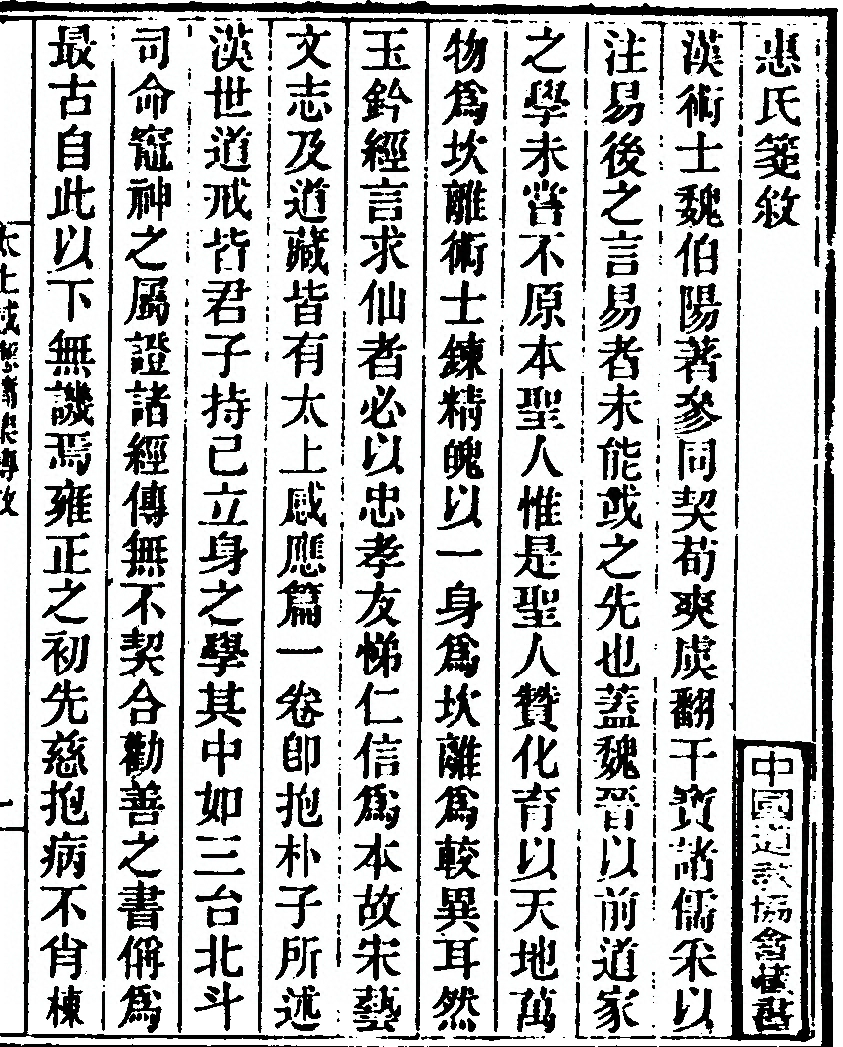 惠氏箋敘
漢術士魏伯陽著參同契荀爽虞翻干寶諸儒采以
注易後之言易者未能或之先也蓋魏晉以前道家
之學未嘗不原本聖人惟是聖人贊化育以天地萬
物爲坎離術士鍊精魄以一身爲坎離爲較異耳然
玉鈐經言求仙者必以忠孝友悌仁信爲本故宋藝
文志及道藏皆有太上感應篇一卷卽抱朴子所述
漢世道戒皆君子持己立身之學其中如三台北斗
司命竈神之屬證諸經傳無不契合勸善之書偁爲
最古自此以下無譏焉雍正之初先慈抱病不肖棟
太上感應篇纘義
中國道教協會